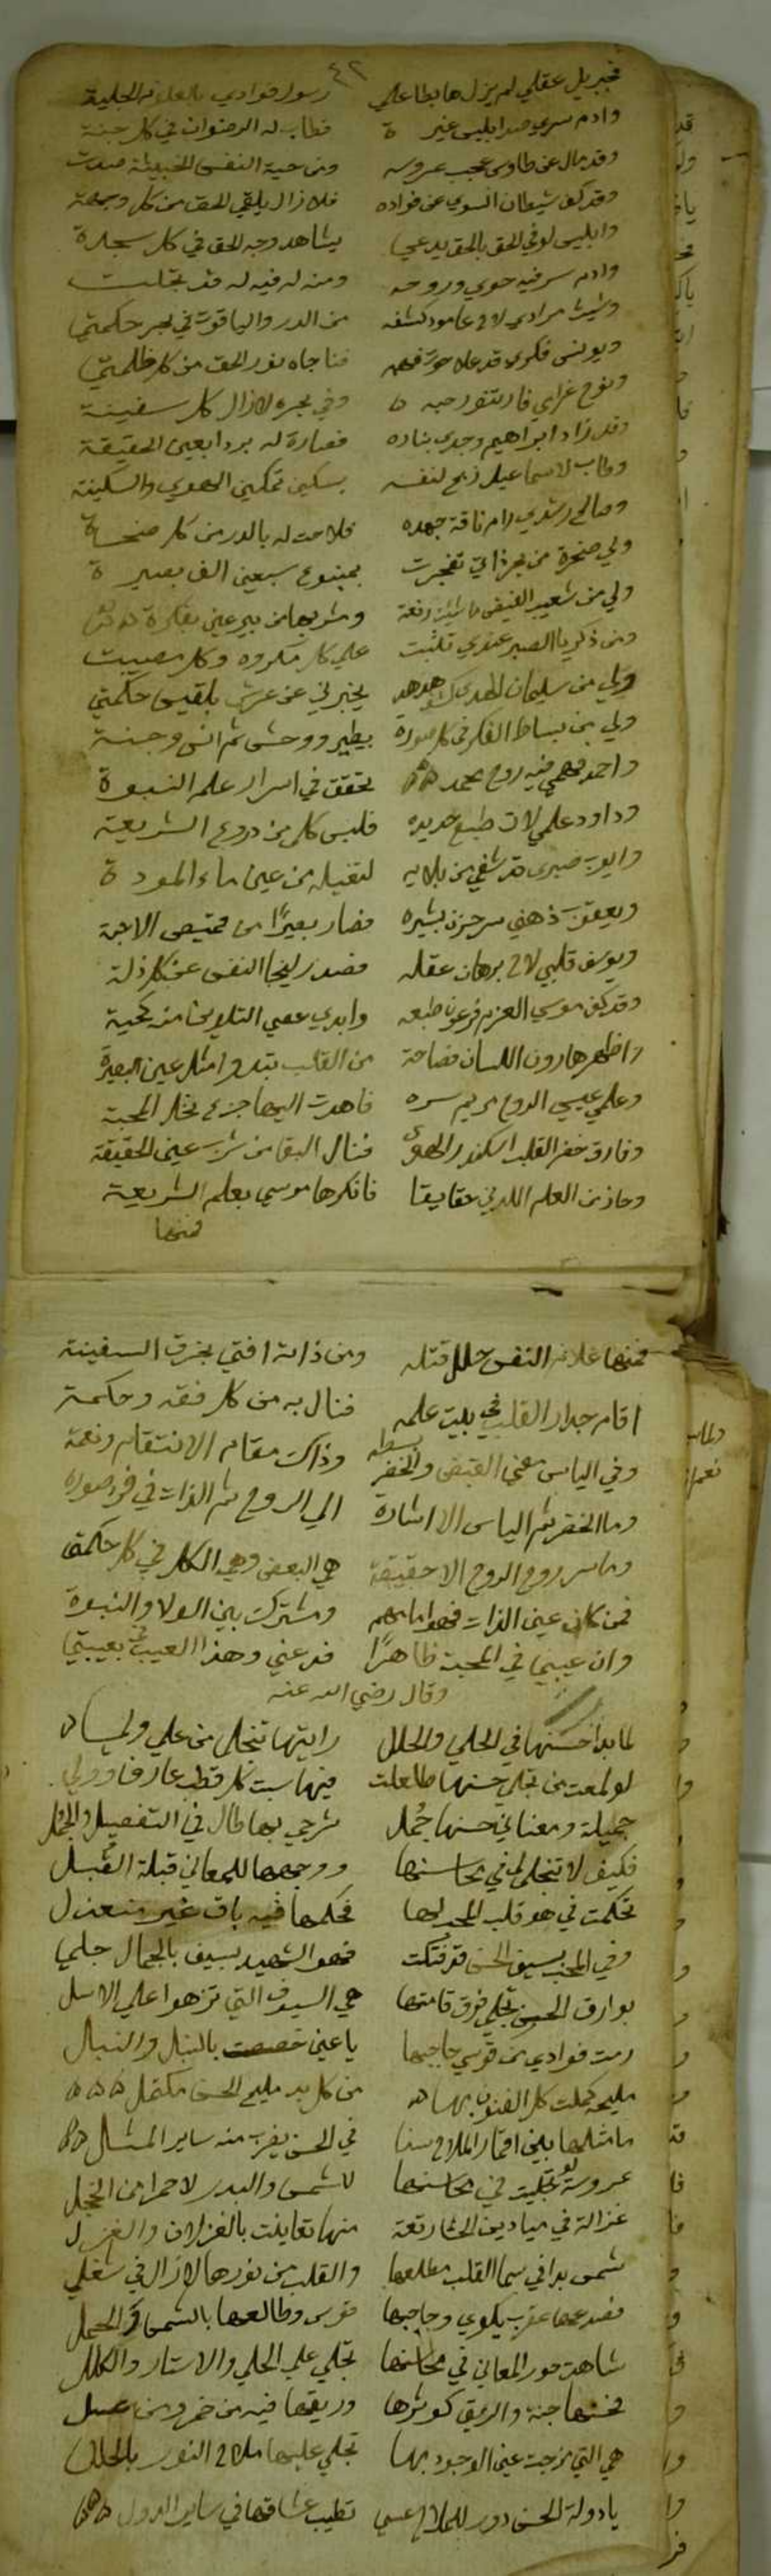 ٤٢
فجبريل عقلي لم يزل هابطا علي رسول فوادي بالعلوم الجلية
وادم سري صد ابليس غيرة فطاب له الرضوان في كل جنة
وقد مال عن طاوس عجب عروسه ومن حية النفس الخبيثة
وقد كف شيطان السوي عن فواده فلا زال يلقي الحق من كل وجهة
وابليس لوني الحق بالحق يدعي يشاهد وجه الحق في كل سجدة
وادم سر فيه حوي وروحه ومنه له فيه له قد تجلت
وشيث مرادي لاح عامود كشفه من الدر والياقوت في بحر حكمتي
ويونس فكري قد علا حوت فناجاه نور الحق من كل ظلمتي
ونوح غرامي فار تنور حبه وفي بحره لا زال كل سفينة
وقد زاد ابراهيم وجدي بناره فصارة له بردا بعين الحقيقة
وطاب لاسماعيل ذبح لنفسه بسكين تمكين الهوي والسكينة
وصالح رشدي رام ناقة جهده فلاحت له بالدر من كل
ولي صخرة من بحر ذاتي تفجرت بمينبوع سبعين الف بصيرة
ولي من شعيب الفيض ما شئت رفعة ومشربها من بير عين
ومن ذكريا الصبر عندي تلبثت علي كل مكروه وكل مصيبت
ولي من سليمان الهدي هدهد يخبرني عن عرش بلقيس حكمتي
ولي من بساط الفكر في كل صورة بطير ووحش ثم انس وجنة
واحمد فهمي فيه روح محمد تحقق في اسرار علم النبوة
وداود علمي لان طبع حديده فلبس كل من دروع الشريعة
وايوب صبري قد شفي من بلايه لتقبيله من عين ماء المودة
ويعقوب ذهني سر حزن بشيره فصار بصيرا من قميص الاحبة
ويوسف قلبي لاح برهان عقله فصد زليخا النفس عن كل ذلة
وقد كف موسي العزم فرعون طبعه وابدي عصي التلوين من كل حية
واظهر هارون اللسان فصاحة من القلب تبدوا مثل عين البصيرة
وعلمي عيسي الروح مريم سره فاهدت اليها جزع نخل المحبة
وفارق خضر القلب اسكندر الهوي فنال البقا من شرب عين الحقيقة
وحاز من العلم اللدني حقايقا فانكرها موسي بعلم الشريعة
فمنها
فمنها غلام النفس حلل قتله ومن ذاته افتي بخرق السفينة
اقام جدار القلب في بيت علمه فنال به من كل فقه وحكمة
وفي الياس معني القبض والخضر بسطه وذاك مقام الانتقام ونعمة
وما الخضر ثم الياس الا اشارة الي الروح ثم الذات في فرد صورة
وما سر روح الروح الا حقيقة هي البعض وهي الكل في كل حكمة
فمن كان عين الذات فهو امامهم ومشترك بين الولا والنبوة
وان عيبني في المحبة ظاهرا فدعني وهذا العيب في بعيبتي
وقال رضي الله عنه
لما بدا حسنها في الحلي والحلل رايتها تنجلي من علي
لو لمعت من تجلي حسنها طلعت فيها سبت كل قطب عارف وولي
جميلة ومعناني حسنها جمل شرحي بها طال في التفصيل والجمل
فكيف لا تنجلي لي في محاسنها ووجهها للمعاني قبلة القبل
تحكمت في هو قلب المحب لها فحكمها فيه باق غير منعزل
وفي المحب بسيف الحسن قد فتكت فهو الشهيد بسيف بالجمال جلي
بوارق الحسن تجلي فوق قامتها هي السيوف التي تزهوا علي الاسل
رمت فوادي من قوسي حاجبها يا عين خصصت بالنبل والنبال
مليحة كملت كل الفنون بها من كل بد مليح الحسن مكتمل
ما مثلها بين اقمار الملاح سنا في الحسن يضرب منه ساير المثل
عروسة لو تجليت في محاسنها للشمس والبدر لاحمرا من الخجل
غزالة في ميادين الحشا رتعة منها تغايلت بالغزلان والغزل
شمس بدا في سما القلب مطلعها والقلب من نورها لا زال في شغلي
فصدغها عقرب يكوي وحاجبها قوس وطالعها بالشمس في الحمل
شاهدت حور المعاني في محاسنها تجلي علي الحلي والاستار والكلل
فحسنها جنة والريق كوثرها وريقها فيه من خمر ومن عسل
هي التي مزجت عين الوجود بها تجلي عليها ملاح النور بالحلل
يا دولة الحسن دور للملاح عسي تطيب عشاقها في ساير الدول